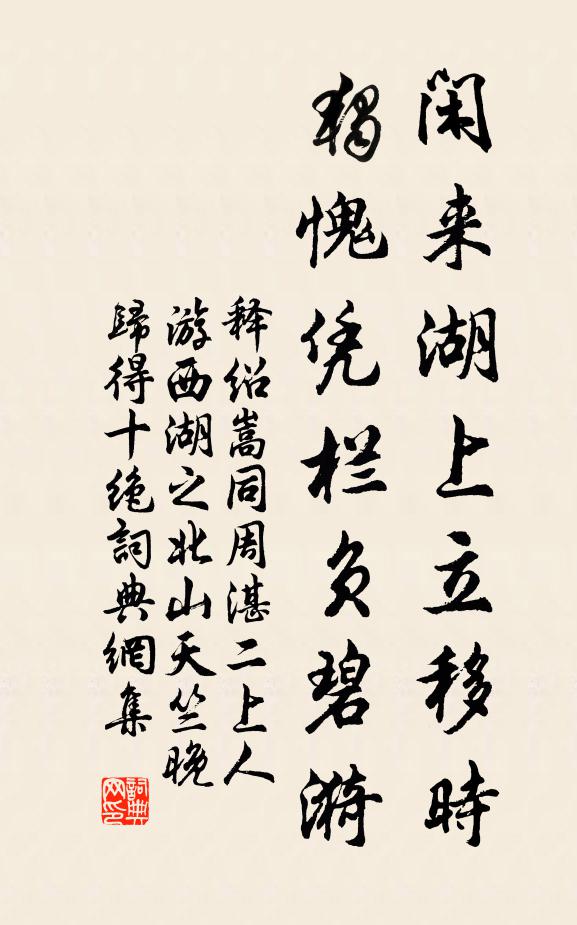 闲来湖上立移時
独愧凭栏负碧漪
释绍嵩同周湛二上人
游西湖之北山天竺晚
歸得十绝詞典網集
詞典
网印